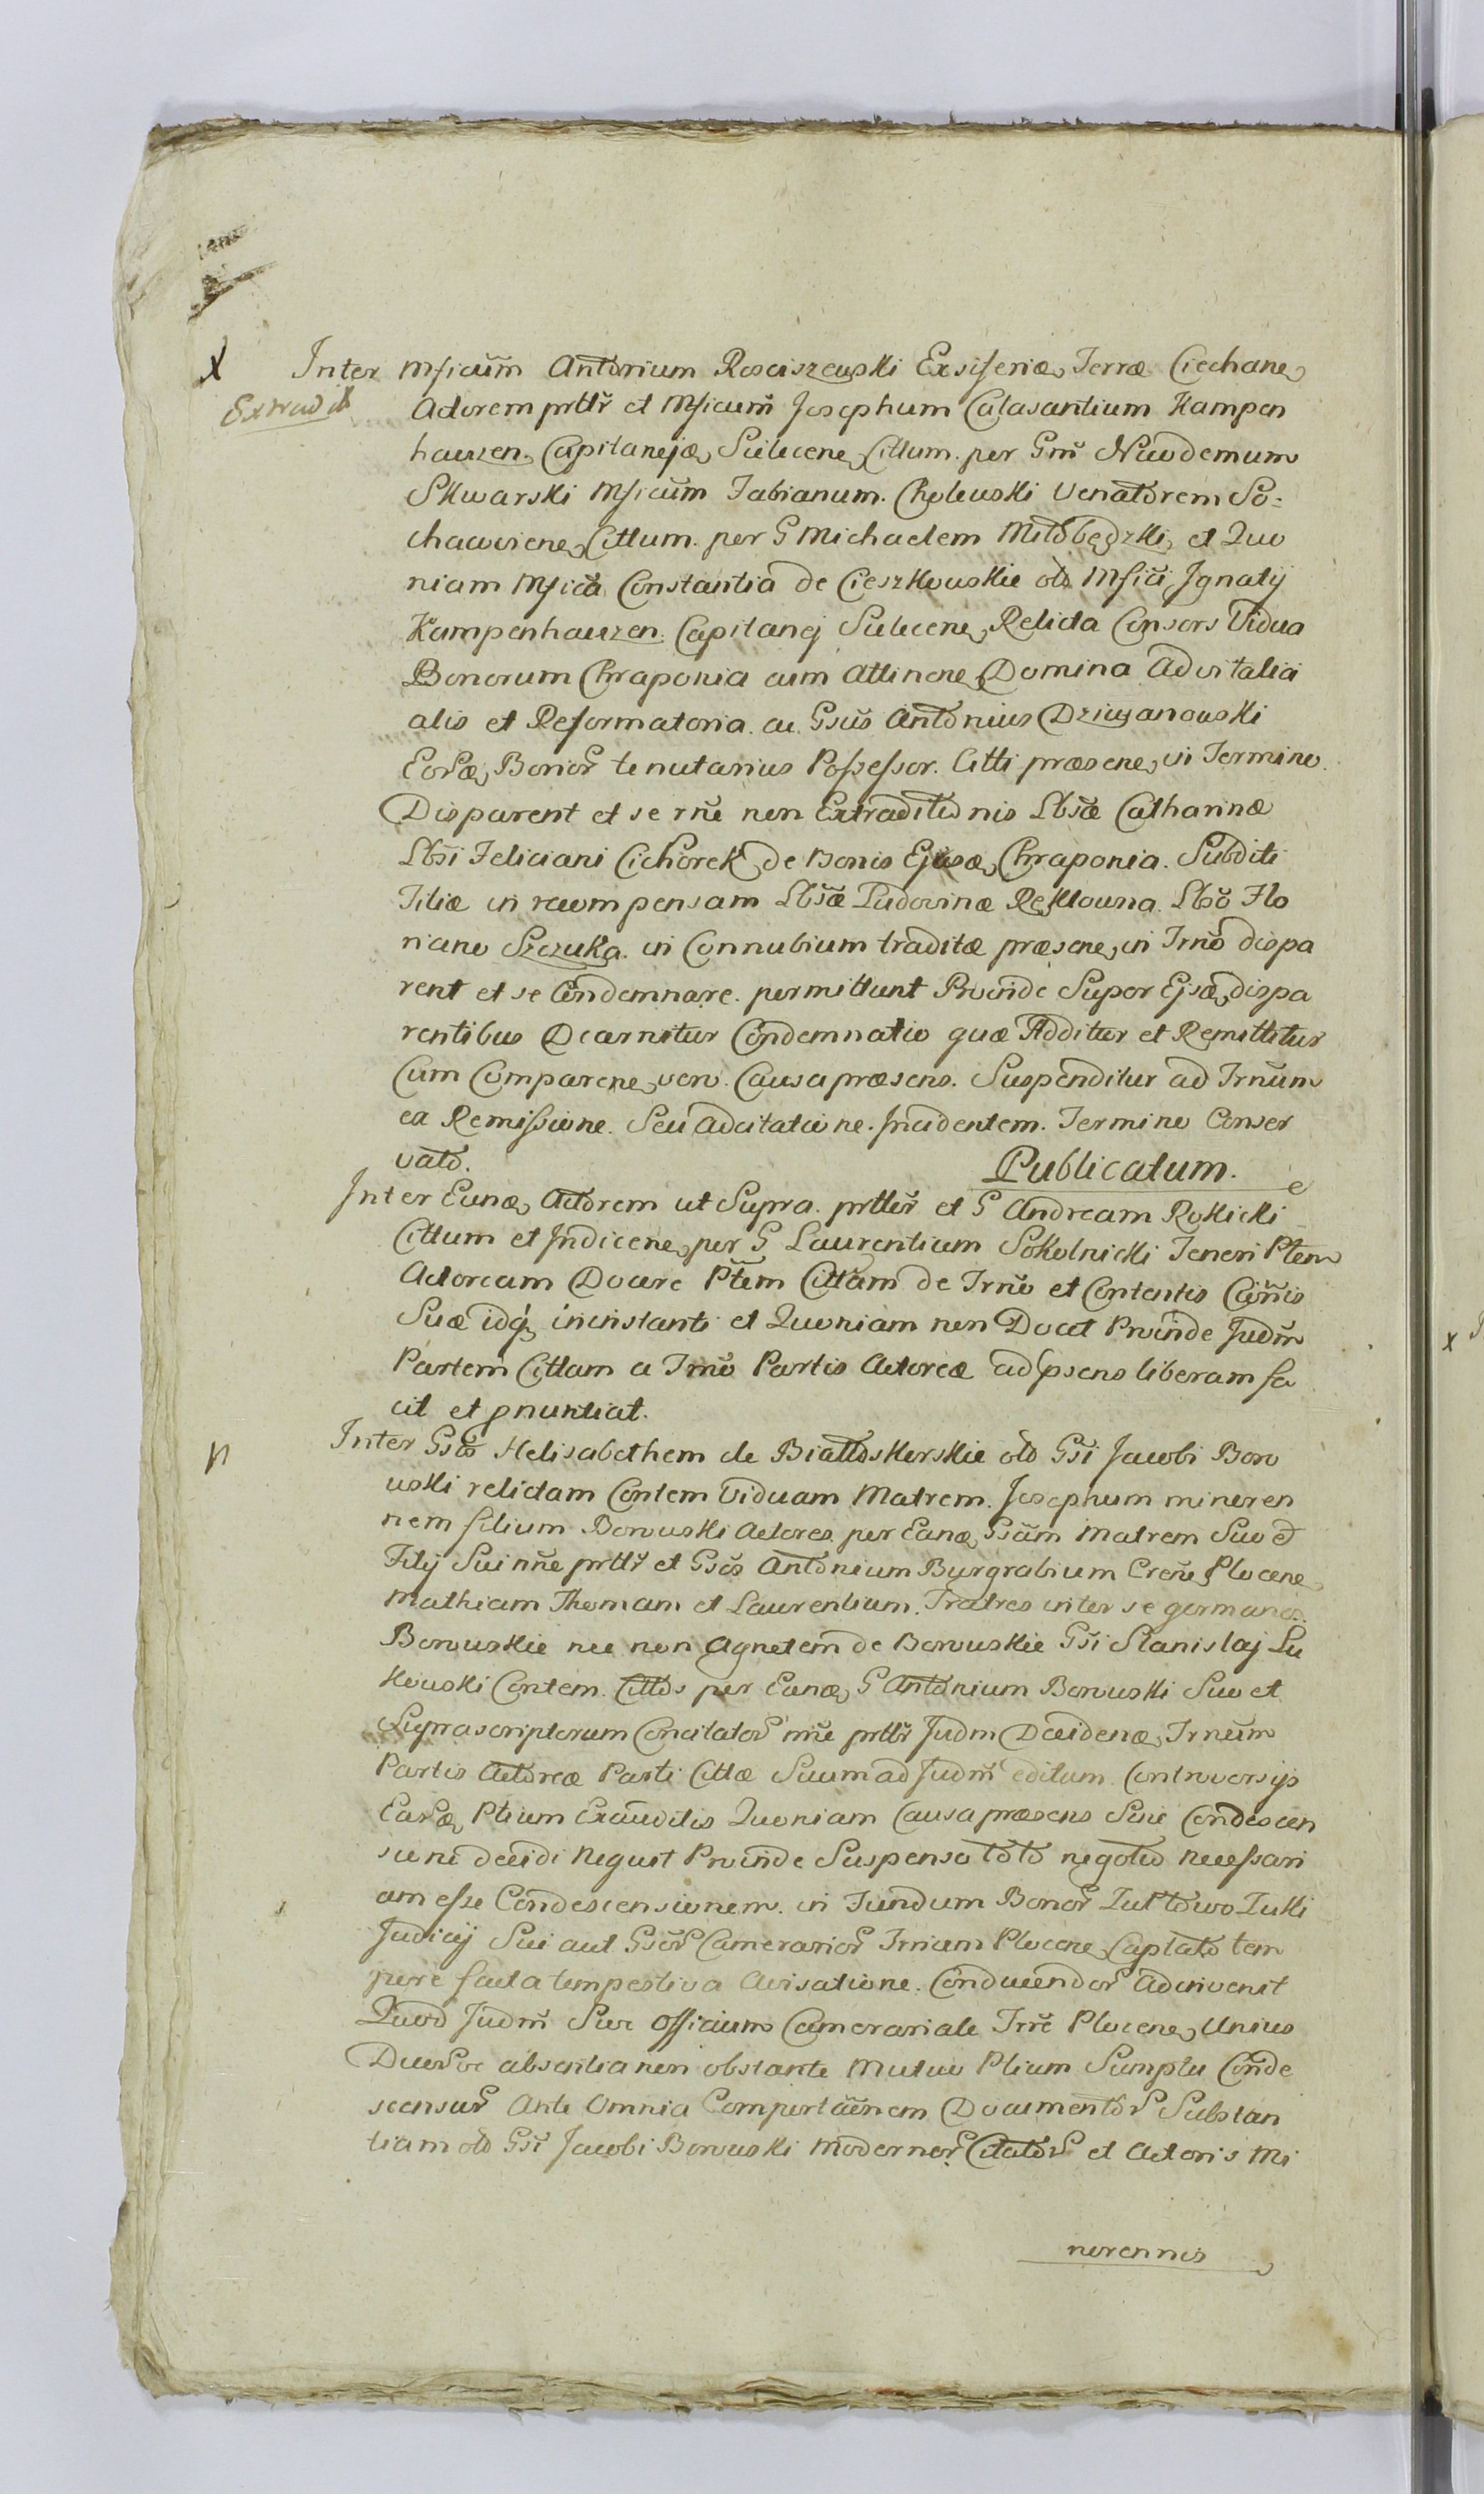 X Inter Mficum Antonium Rosciszewski Exsiferiæ, Terræ Ciechane,
Extradit Actorem prttr et Mficum Josephum Calasantium Kampen
hauzen Capitanejæ, Sulecene, Cittum. per Gm Nicodemum
Skwarski Mficum Fabianum. Cholewski Venatorem So=
chacviene, Cittum. per G Michaelem Miłobędzki, et Quo
niam Mfica Constantia de Cieszkowskie olo Mfici Ignatij
Kampenhauzen. Capitanej Sulecene, Relicta Consors Vidua
Bonorum Chraponia cum Attinene, Domina Advitalici
alis et Reformatoria. ac Gsus Antonius Dziuganowski
Eordæ, Bonor tenutarius Possessor. Citti præsene, in Termino.
Disparent et se rne non Extraditionis Lbsæ Catharinæ
Lbsi Feliciani Cichorek de Bonis Ejusdæ, Chraponia. Subditi
Filiæ in recompensam Lbsæ Ludovinæ Reklowna. Lbso Flo
riano Szczuka. in Connubium traditæ præsene, in Trno dispa
rent et se Condemnare. permittunt Proinde Super Ejsdæ, dispa
rentibus Decernitur Condemnatio quæ Additur et Remittitur
Cum Comparene, vero. Causa præsens. Suspenditur ad Trnum
ex Remissione. Seu Adcitatione. Incidentem. Termino Conser
vato. Publicatum.
Inter Eunæ, Actorem ut Supra. prtter et G Andream Rokicki
Cittum et Indicene, per G Laurentium Sokolnicki Teneri Ptem
Actoream Docere Ptem Cittam de Trno et Contentis Citnis
Suæ idq, ininstanti et Quoniam non Docet Proinde Judm
Partem Cittam a Trno Partis Actoreæ ad psens liberam fa
cit et pnuntiat.
N Inter Gso Helisabethem de Białłoskorskie olo Gsi Jacobi Boro
wski relictam Contem Viduam Matrem. Josephum minoren
nem filium Borowski Actores. per Eanæ, Gsam Matrem Suo et
Filij Sui nne prttr et Gsos Antonium Burgrabium Crene Plocene,
Mathiam Thomam et Laurentium. Fratres inter se germanos.
Borowskie nec non Agnetem de Borowskie Gsi Stanislaj Lu
kowski Contem. Cittos per Eunæ, G Antonium Borowski Suo et
Suprascriptorum Concitator nne prttr Judm Decidenæ, Trnum
Partis Actoreæ Parti Cittæ Suum ad Judm editum. Controversijs
Earæ, Ptium Exauditis Quoniam Causa præsens Sine Condescen
sione decidi nequit Proinde Suspenso toto negotio necessari
am esse Condescensionem. in Fundum Bonor Lutłowo Lutki
Judicij Sui aut Gsor Camerarior Trriam Plocene, Captato tem
pore facta tempestiva Avisatione. Conducendor Adinvenit
Quod Judm Sive Officium Camerariale Trre Plocene, Unius
Duorve absentia non obstante Mutuo Ptium Sumptu Conde
scensur Ante Omnia Comportaonem Documentor Substan
tiam olo Gsi Jacobi Borowski Modernor Citator et Actoris Mi
norennis